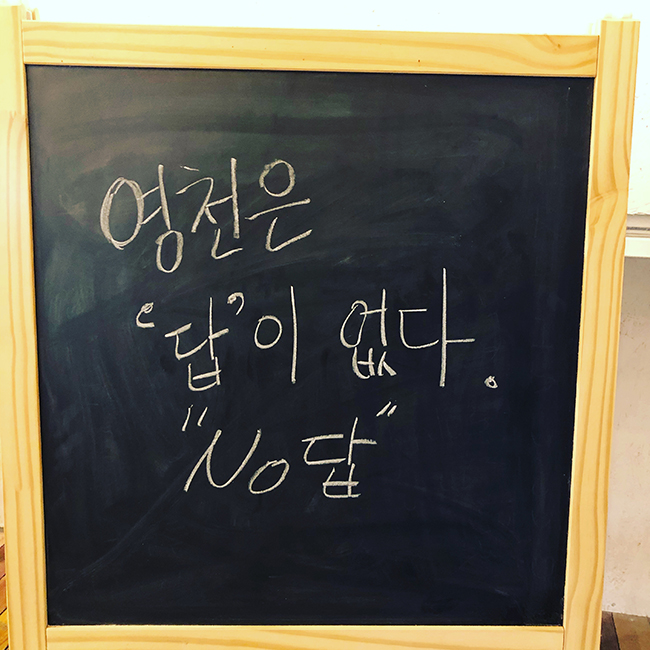 영천은
'답'이 없다.
"No답"